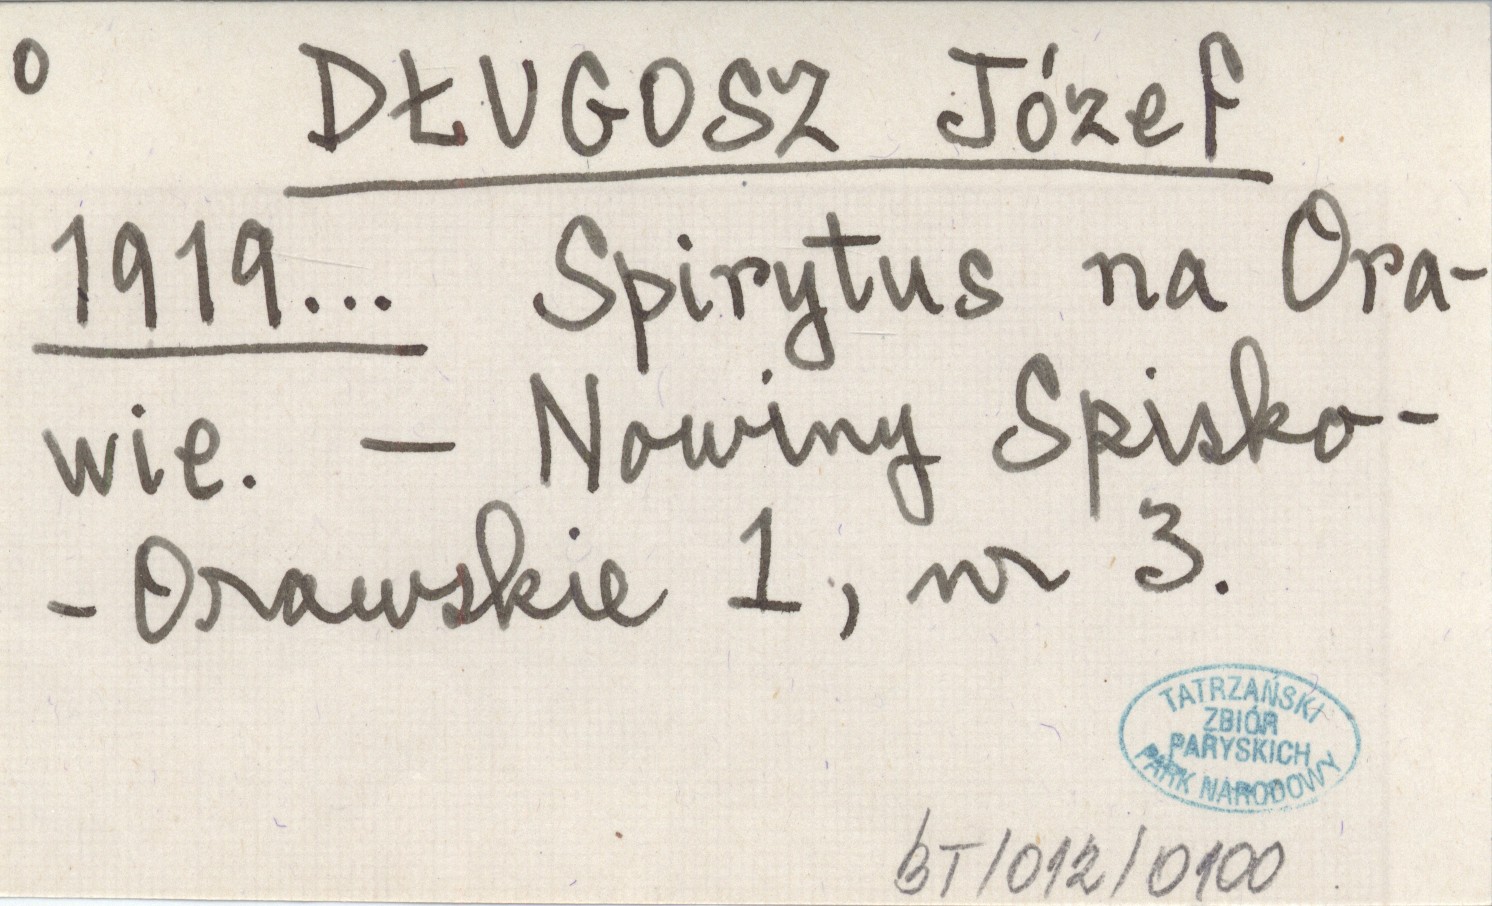 o DŁUGOSZ Józef
1919... Spirytus na Ora-
wie. — Nowiny Spisko-
- Orawskie 1, nr 3.
TATRZAŃSKI
ZBIÓR
PARYSKICH
PARK NARODOWY
BT/012/0100